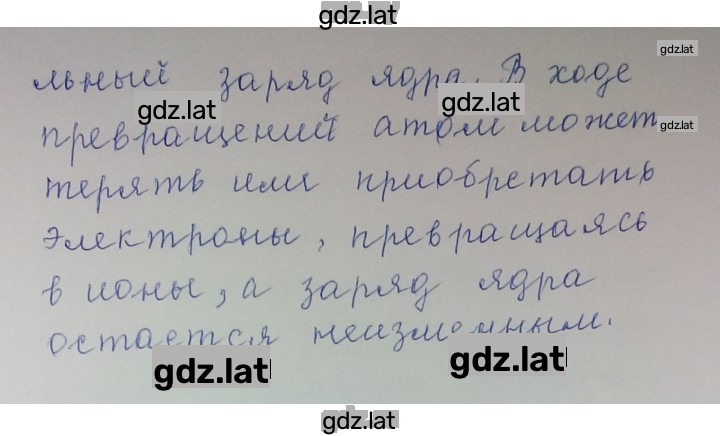 gdz.lat
льный заряд ядра. В ходе
gdz.lat
gdz.lat gdz.lat
превращений атом может
gdz.lat
терять или приобретать
электроны, превращаясь
в ионы, а заряд ядра
остается неизменным.
gdz.lat gdz.lat
gdz.lat